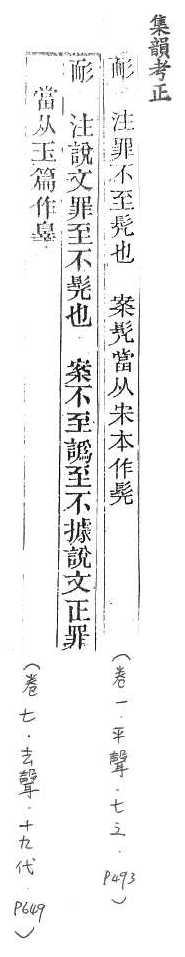 集韻考正
耏 注罪不至髡也 案髡當从宋本作髠
(卷一.平聲.七之.P493)
耏 注說文罪至不髡也 案不至譌至不據說文正罪
當从玉篇作辠
(卷七.去聲.十九代.P649)